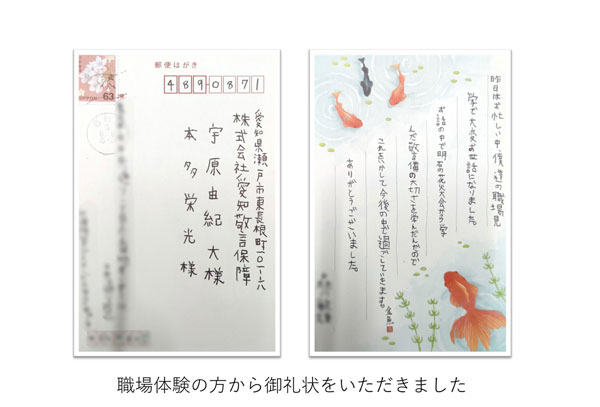 郵便はがき
63
NIPPON
489-0871
愛知県瀬戸市東長根町一〇一-一八
株式会社愛知警備保障
宇原由紀大様
本多栄光様
昨日はお忙しい中、僕達の職場見
学で大変お世話になりました。
お話の中で明石の花火大会から学
んだ警備の大切さを学んだので
これをいかして今後の中で過ごしていきます。
ありがとうございました。
職場体験の方から御礼状をいただきました